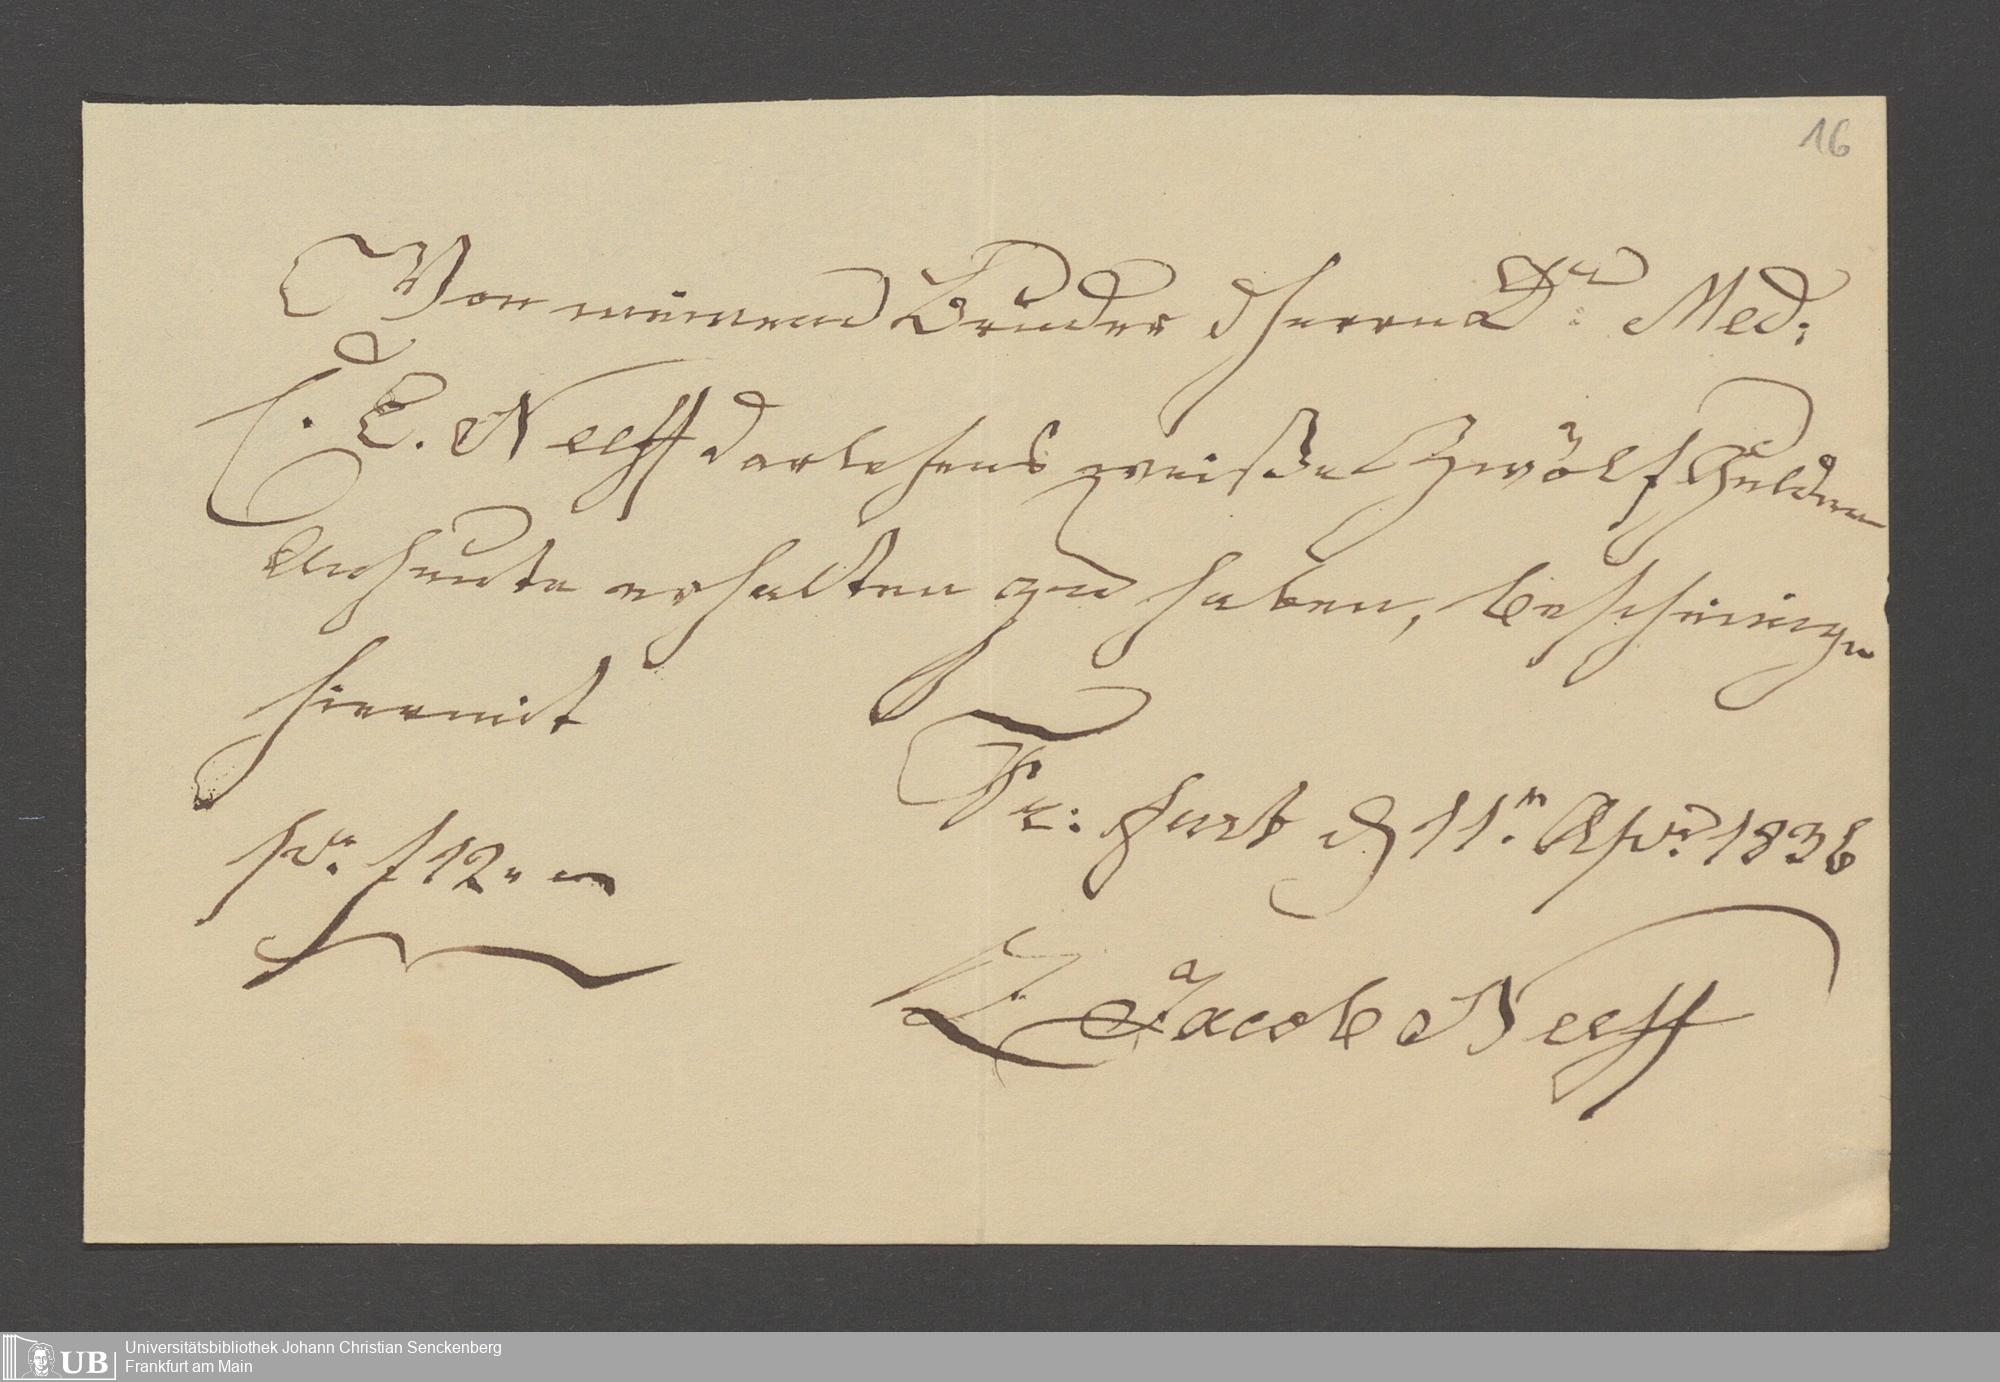 16
Von meinem Bruder Herrn Dr: Med:
C. E. Neeff darlehensweiße Zwölf Gulden
Anheute erhalten zu haben, bescheinige
hiermit
pr. f 12 „ —
Fr: furt d 11n. Apr: 1836
Jacob Neeff
UB
Universitätsbibliothek Johann Christian Senckenberg
Frankfurt am Main